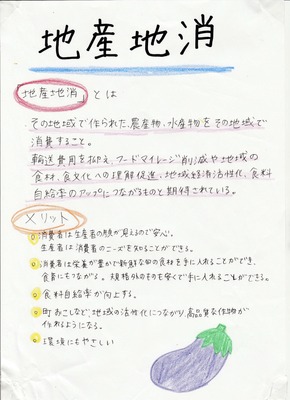 地産地消
「地産地消」とは
その地域で作られた農産物、水産物をその地域で
消費すること。
輸送費用を抑え、フードマイレージ削減や地域の
食材、食文化への理解促進、地域経済活性化、食料
自給率のアップにつながるものと期待されている。
メリット
消費者は生産者の顔が見えるので安心。
生産者は消費者のニーズを知ることができる。
消費者は栄養が豊かで新鮮な旬の食材を手に入れることができ、
食育にもつながる。規格外のものを安く手に入れることができる。
食料自給率が向上する。
町おこしなど、地域の活性化につながり、高品質な作物が
作れるようになる。
環境にもやさしい